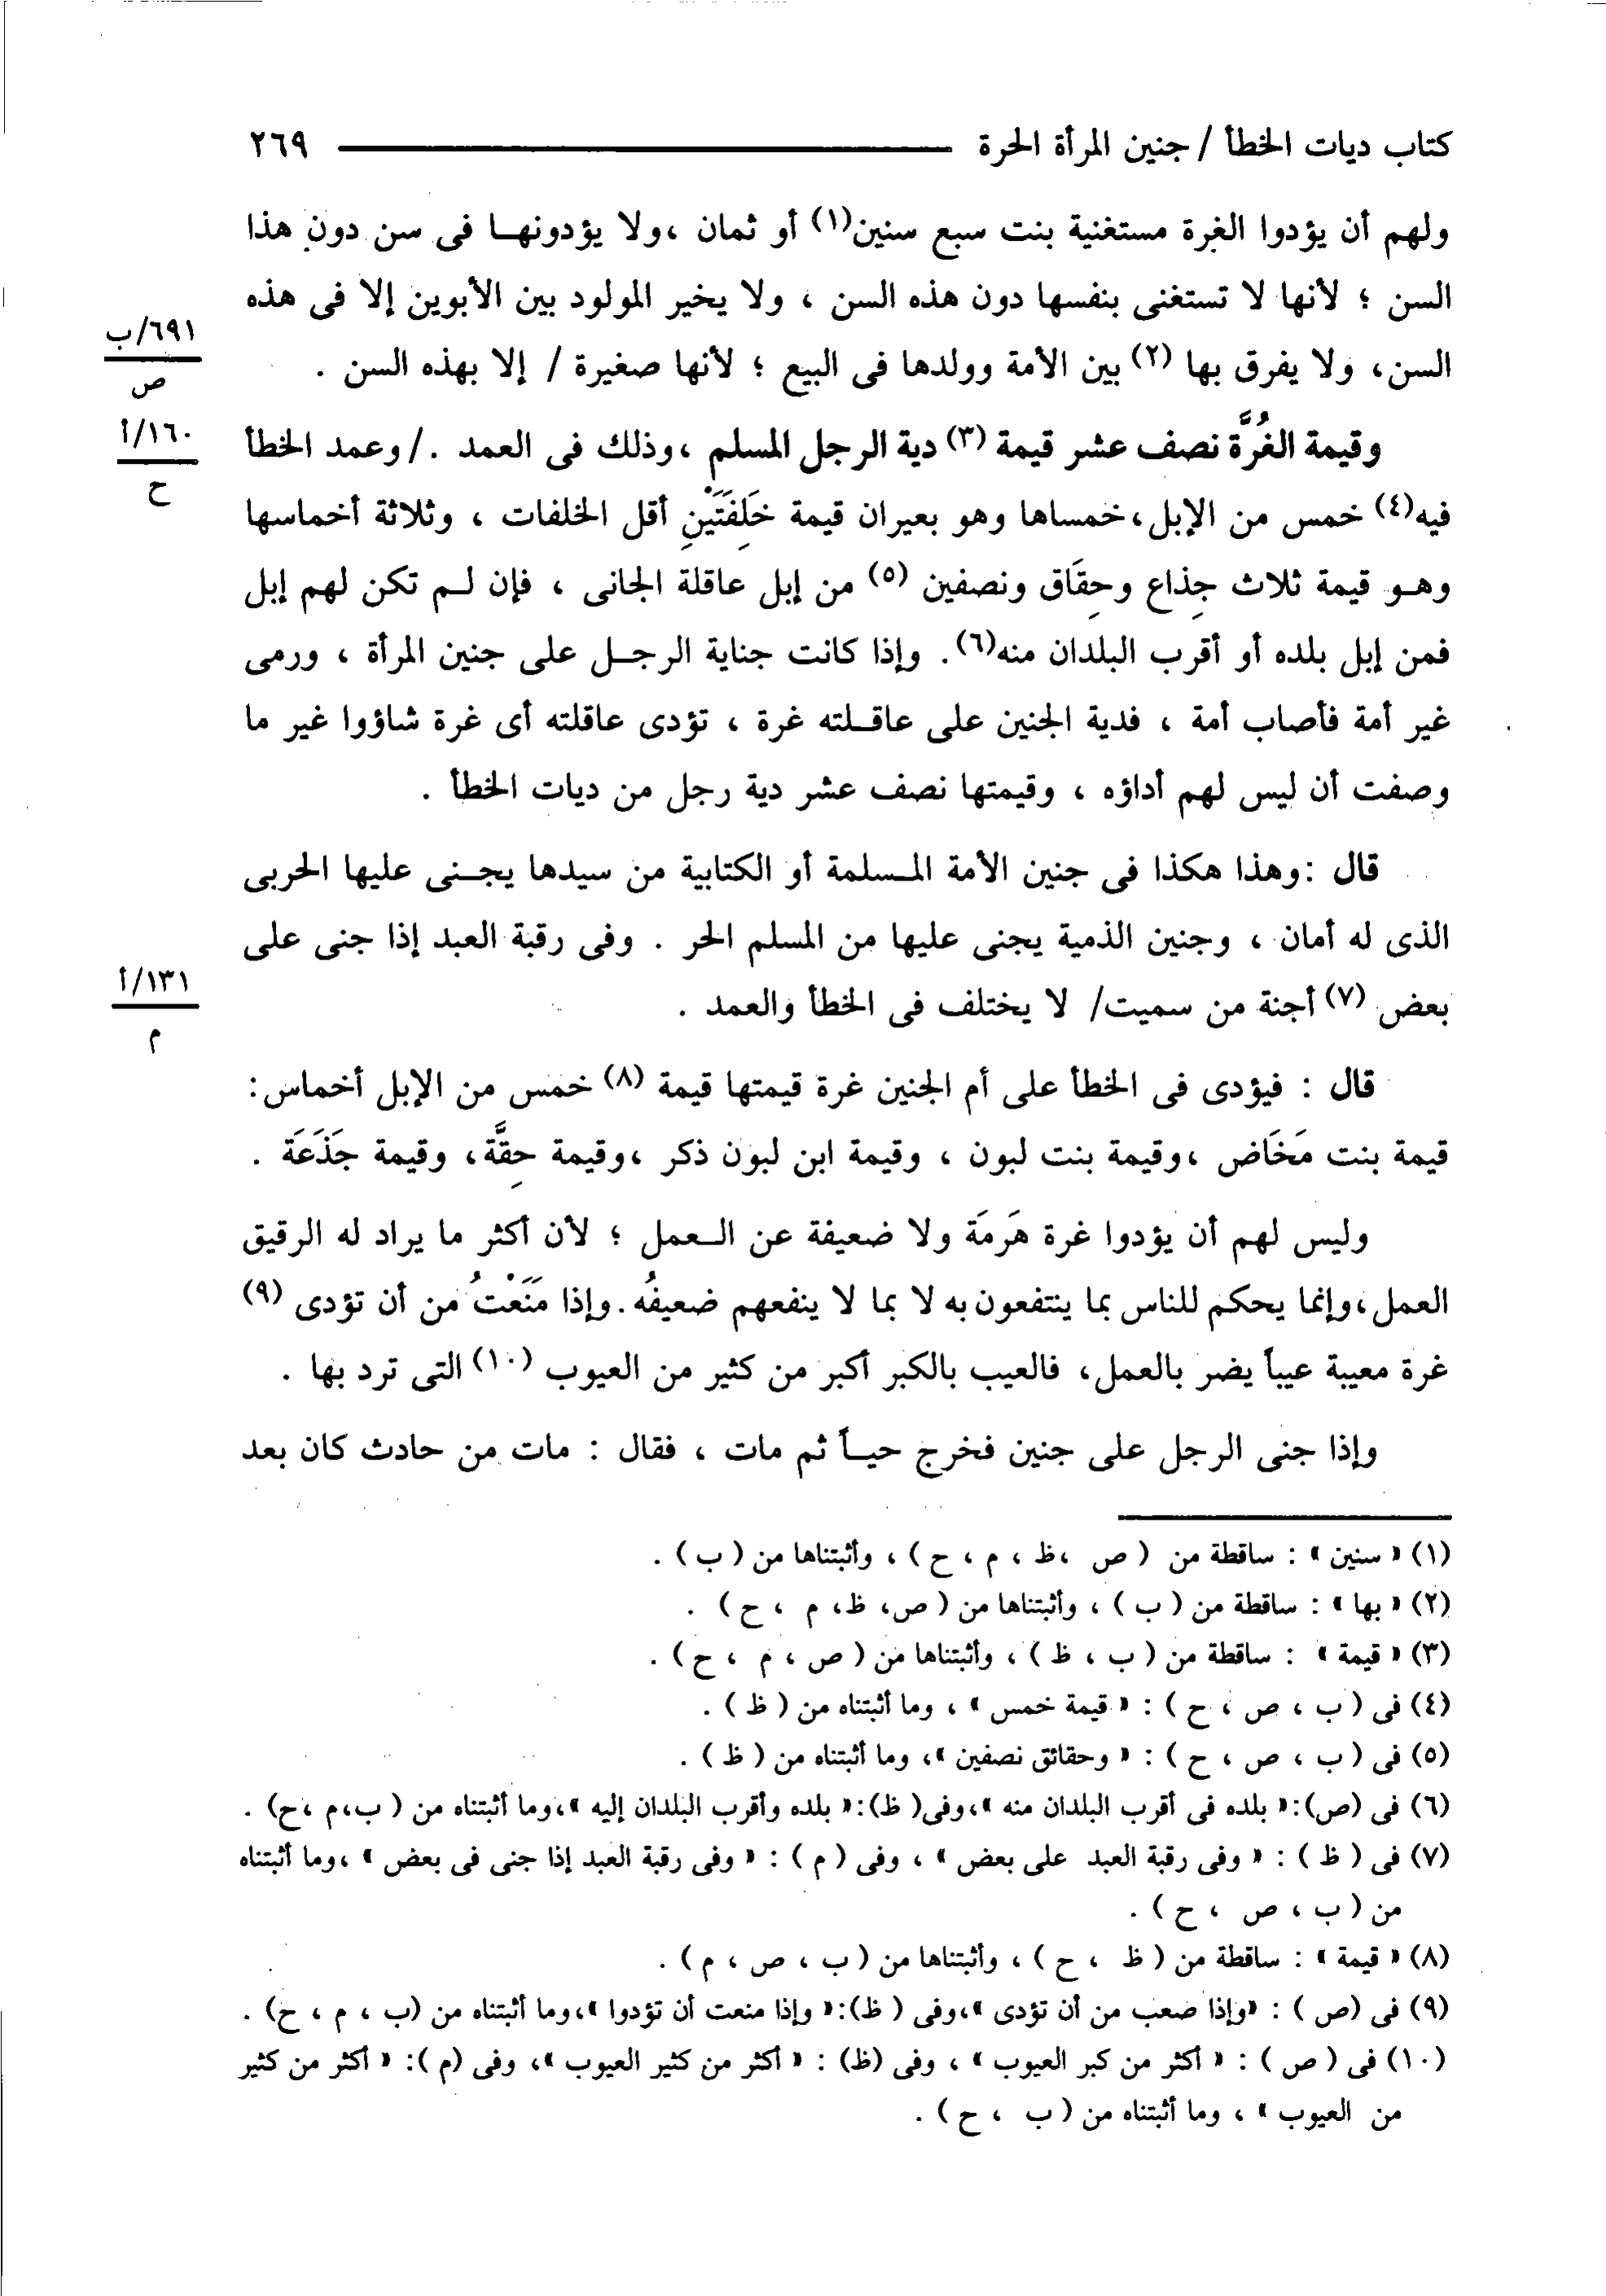 كتاب ديات الخطأ / جنين المرأة الحرة ٢٦٩
ولهم أن يؤدوا الغرة مستغنية بنت سبع سنين(١) أو ثمان ،ولا يؤدونهـا فى سن دون هذا
السن ؛ لأنها لا تستغنى بنفسها دون هذه السن ، ولا يخير المولود بين الأبوين إلا فى هذه
٦٩١/ب
ص
السن، ولا يفرق بها (٢) بين الأمة وولدها فى البيع ؛ لأنها صغيرة / إلا بهذه السن .
١٦٠/أ
ح
وقيمة الغُرَّة نصف عشر قيمة (٣) دية الرجل المسلم ،وذلك فى العمد ./ وعمد الخطأ
فيه(٤) خمس من الإبل،خمساها وهو بعيران قيمة خَلِفَتَيْنِ أقل الخلفات ، وثلاثة أخماسها
وهـو قيمة ثلاث جِذاع وحِقَاق ونصفين (٥) من إبل عاقلة الجانى ، فإن لـم تكن لهم إبل
فمن إبل بلده أو أقرب البلدان منه(٦). وإذا كانت جناية الرجـل على جنين المرأة ، ورمى
غير أمة فأصاب أمة ، فدية الجنين على عاقـلته غرة ، تؤدى عاقلته أى غرة شاؤوا غير ما
وصفت أن ليس لهم أداؤه ، وقيمتها نصف عشر دية رجل من ديات الخطأ .
قال :وهذا هكذا فى جنين الأمة المـسلمة أو الكتابية من سيدها يجـنى عليها الحربى
الذى له أمان ، وجنين الذمية يجنى عليها من المسلم الحر . وفى رقبة العبد إذا جنى على
١٣١/أ
م
بعض (٧) أجنة من سميت/ لا يختلف فى الخطأ والعمد .
قال : فيؤدى فى الخطأ على أم الجنين غرة قيمتها قيمة (٨) خمس من الإبل أخماس:
قيمة بنت مَخَاض ،وقيمة بنت لبون ، وقيمة ابن لبون ذكر ،وقيمة حِقَّة، وقيمة جَذَعَة .
وليس لهم أن يؤدوا غرة هَرِمَة ولا ضعيفة عن الـعمل ؛ لأن أكثر ما يراد له الرقيق
العمل،وإنما يحكم للناس بما ينتفعون به لا بما لا ينفعهم ضعيفُه.وإذا مَنَعْتُ من أن تؤدى (٩)
غرة معيبة عيباً يضر بالعمل، فالعيب بالكبر أكبر من كثير من العيوب (١٠) التى ترد بها .
وإذا جنى الرجل على جنين فخرج حيـاً ثم مات ، فقال : مات من حادث كان بعد
(١) « سنين » : ساقطة من ( ص ،ظ ، م ، ح ) ، وأثبتناها من ( ب ) .
(٢) « بها » : ساقطة من ( ب ) ، وأثبتناها من ( ص، ظ، م ، ح ) .
(٣) « قيمة » : ساقطة من ( ب ، ظ ) ، وأثبتناها من ( ص ، م ، ح ) .
(٤) فى ( ب ، ص ، ح ) : « قيمة خمس » ، وما أثبتناه من ( ظ ) .
(٥) فى ( ب ، ص ، ح ) : « وحقائق نصفين »، وما أثبتناه من ( ظ ) .
(٦) فى (ص):« بلده فى أقرب البلدان منه »،وفى( ظ):« بلده وأقرب البلدان إليه »،وما أثبتناه من ( ب،م ،ح) .
(٧) فى ( ظ ) : « وفى رقبة العبد على بعض » ، وفى ( م ) : « وفى رقبة العبد إذا جنى فى بعض » ،وما أثبتناه
من ( ب ، ص ، ح ) .
(٨) « قيمة » : ساقطة من ( ظ ، ح ) ، وأثبتناها من ( ب ، ص ، م ) .
(٩) فى (ص ) : «وإذا صعب من أن تؤدى »،وفى ( ظ):« وإذا منعت أن تؤدوا »،وما أثبتناه من (ب ، م ، ح) .
(١٠) فى ( ص ) : « أكثر من كبر العيوب » ، وفى (ظ) : « أكثر من كثير العيوب »، وفى (م ): « أكثر من كثير
من العيوب » ، وما أثبتناه من ( ب ، ح ) .